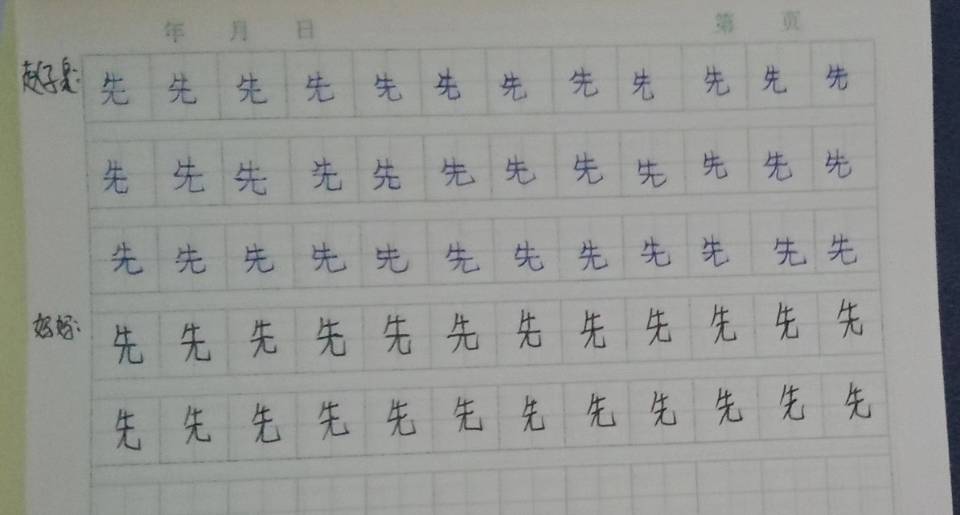 年 月 日 第 页
先 先 先 先 先 先 先 先 先 先 先 先
先 先 先 先 先 先 先 先 先 先 先 先
先 先 先 先 先 先 先 先 先 先 先 先
好好: 先 先 先 先 先 先 先 先 先 先 先 先
先 先 先 先 先 先 先 先 先 先 先 先